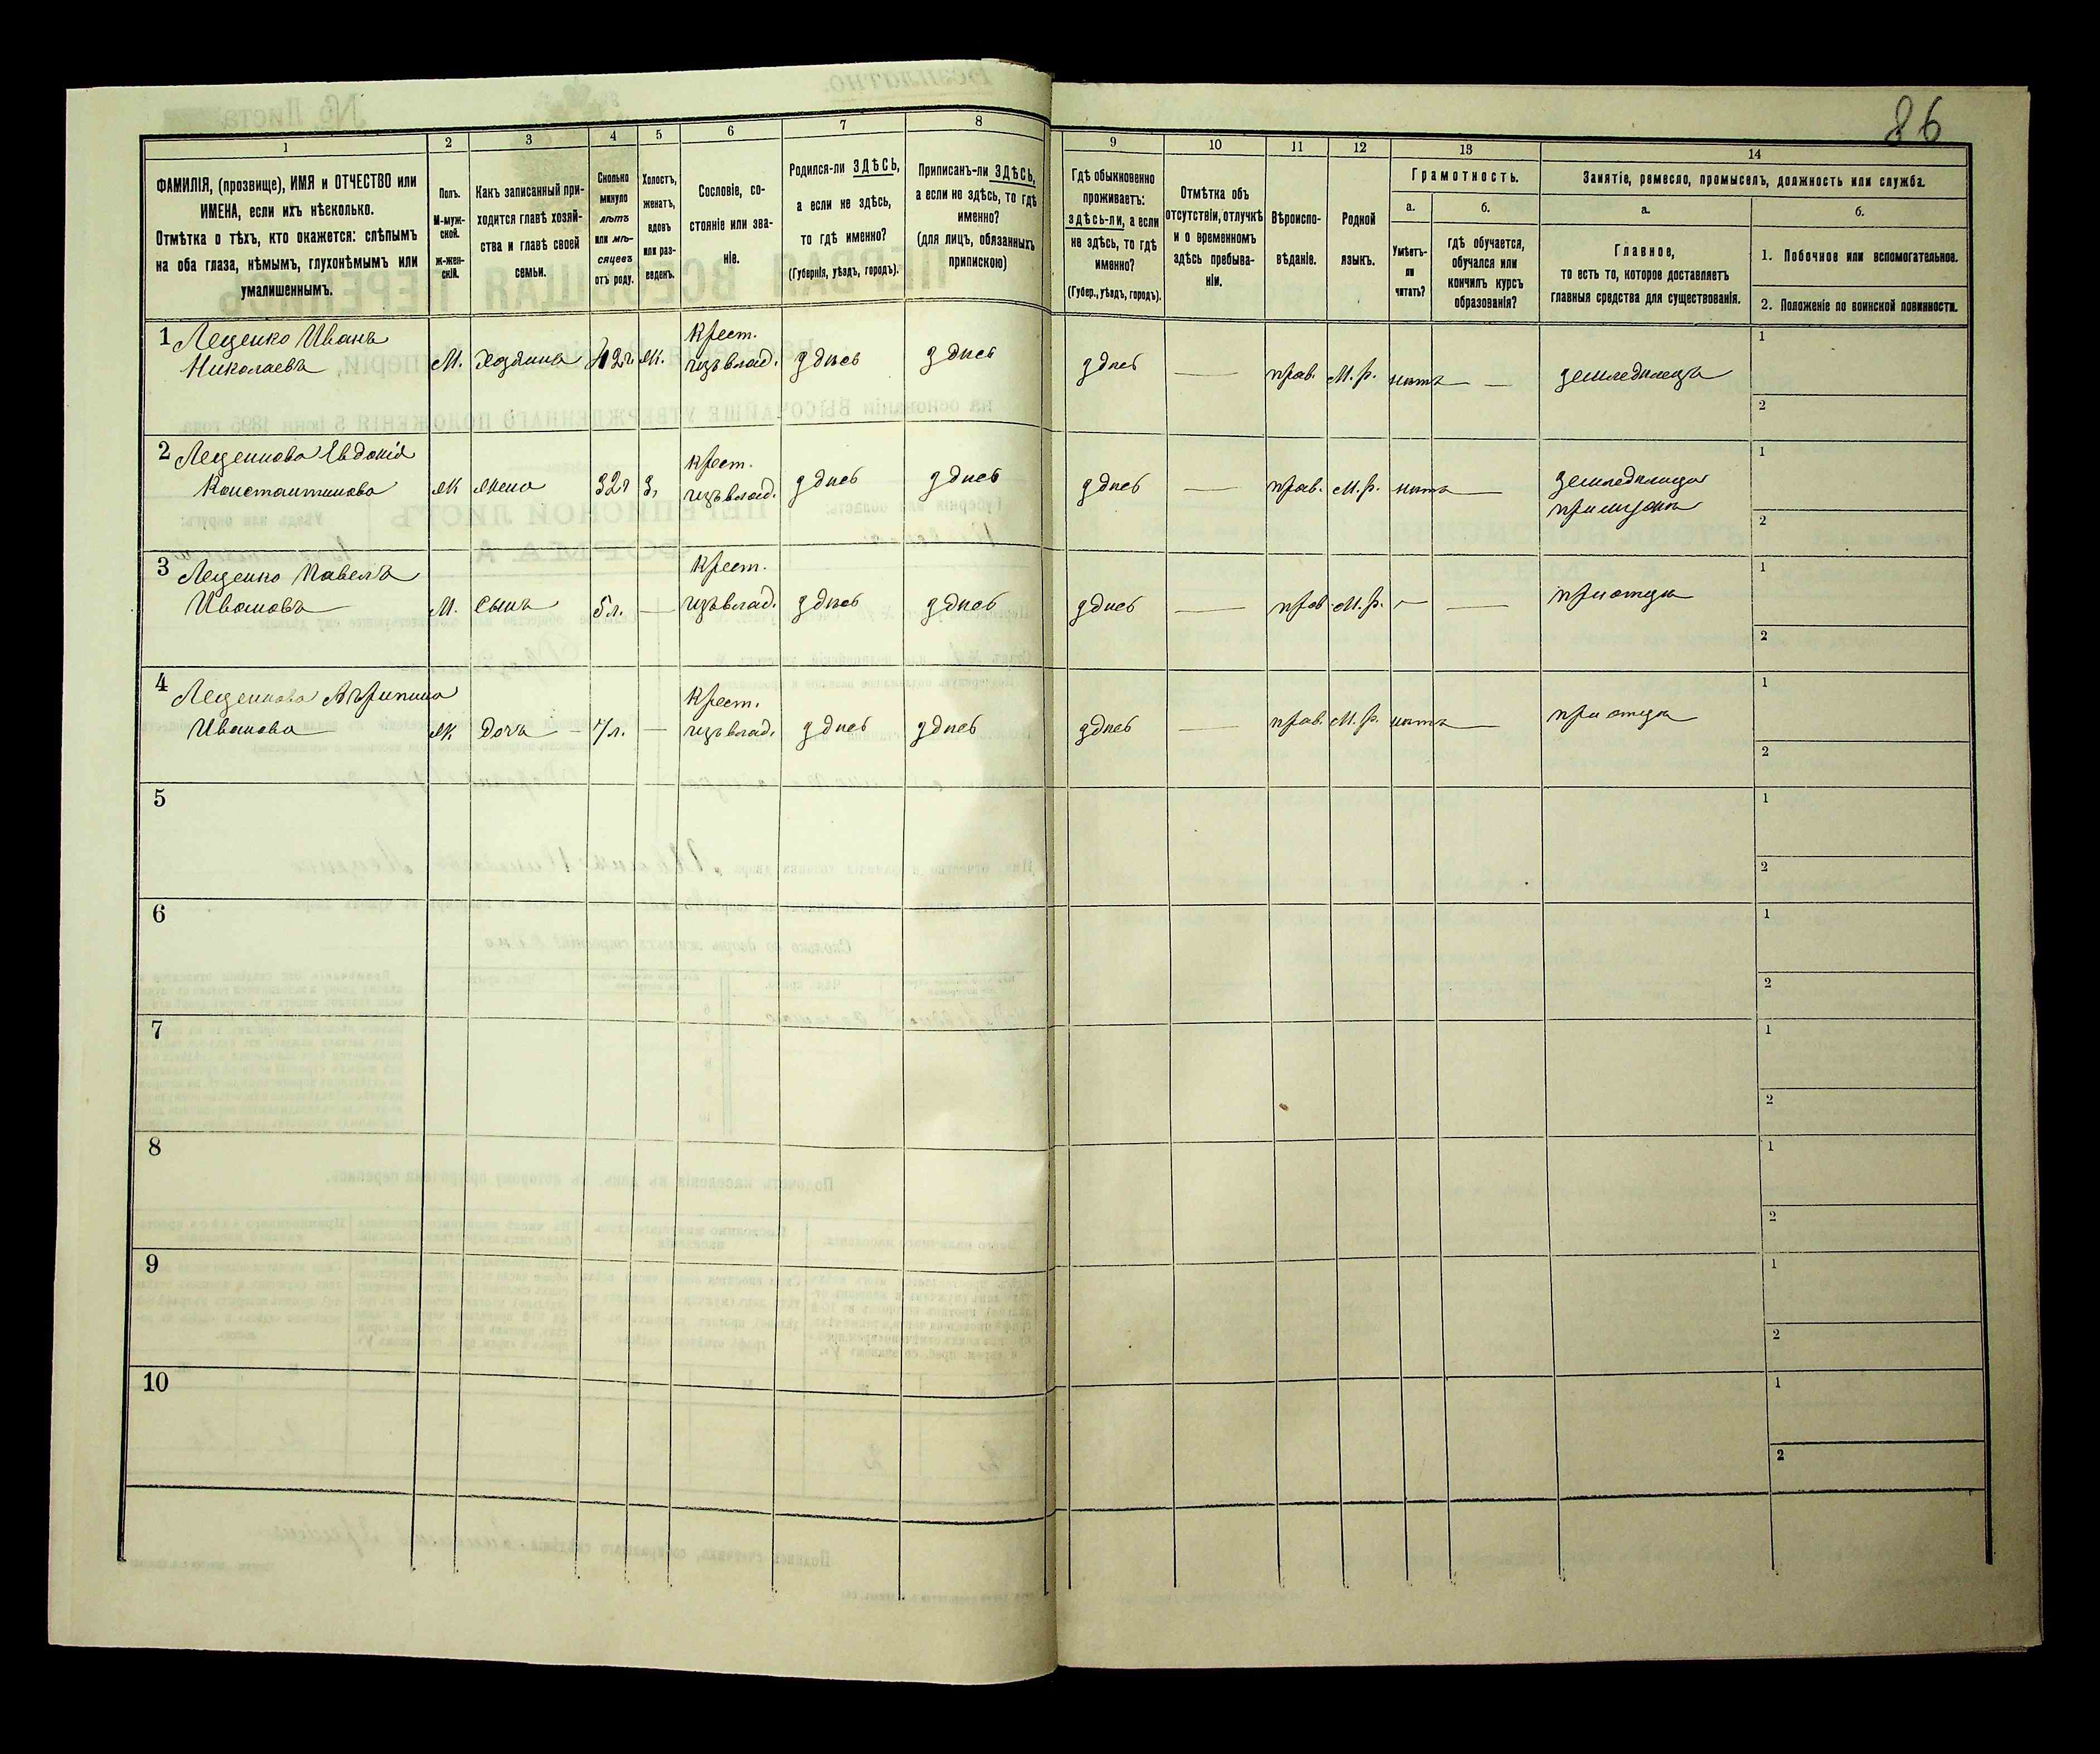 86
1
2
3
4
5
6
7
8
9
10
11
12
13
14
ФАМИЛІЯ, (прозвище), ИМЯ и ОТЧЕСТВО или
ИМЕНА, если ихъ нѣсколько.
Отмѣтка о тѣхъ, кто окажется: слѣпымъ
на оба глаза, нѣмымъ, глухонѣмымъ или
умалишеннымъ.
Полъ.
М-муж-
ской.
ж-жен-
скій.
Какъ записанный при-
ходится главѣ хозяй-
ства и главѣ своей
семьи.
Сколько
минуло
лѣтъ
или мѣ-
сяцевъ
отъ роду.
Холостъ,
женатъ,
вдовъ
или раз-
веденъ.
Сословіе, со-
стояніе или зва-
ніе.
Родился-ли ЗДѢСЬ,
а если не здѣсь,
то гдѣ именно?
(Губернія, уѣздъ, городъ).
Приписанъ-ли ЗДѢСЬ,
а если не здѣсь, то гдѣ
именно?
(для лицъ, обязанныхъ
припискою)
Гдѣ обыкновенно
проживаетъ:
здѣсь-ли, а если
не здѣсь, то гдѣ
именно?
(Губер., уѣздъ, городъ).
Отмѣтка объ
отсутствіи, отлучкѣ
и о временномъ
здѣсь пребыва-
ніи.
Вѣроиспо-
вѣданіе.
Родной
языкъ.
Грамотность.
а.
Умѣетъ-
ли
читать?
б.
гдѣ обучается,
обучался или
кончилъ курсъ
образованія?
Занятіе, ремесло, промыселъ, должность или служба.
а.
Главное,
то есть то, которое доставляетъ
главныя средства для существованія.
б.
1. Побочное или вспомогательное.
2. Положеніе по воинской повинности.
1 Лещенко Иванъ
Николаевъ М. Хозяинъ 42г. Ж. Крест. изъ влад. здѣсь здѣсь здѣсь — прав. М. р. нѣтъ — земледѣлецъ
1
2
2 Лещенкова Евдокія
Константинова Ж жена 32г з. Крест. изъ влад. здѣсь здѣсь здѣсь — прав. М. р. нѣтъ —
1
2
3 Лещенко Павелъ
Ивановъ М. сынъ 5 л. — Крест. изъ влад. здѣсь здѣсь здѣсь — прав. М. р. — — при отцѣ
1
2
4 Лещенкова Агрипина
Иванова Ж Дочь — л. — Крест. изъ влад. здѣсь здѣсь здѣсь — прав. М. р. нѣтъ — при отцѣ
1
2
5
1
2
6
1
2
7
1
2
8
1
2
9
1
2
10
1
2